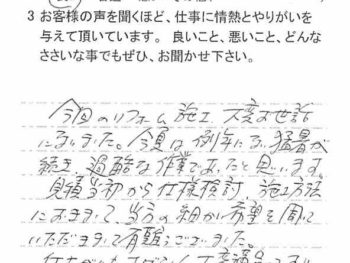 3 お客様の声を聞くほど、仕事に情熱とやりがいを
与えて頂いています。 良いこと、悪いこと、どんな
ささいな事でもぜひ、お聞かせ下さい。
今回のリフォーム施工、大変お世話
になりました。今夏は例年にない猛暑が
続き、過酷な作業であったと思います。
見積当初から仕様検討、施工方法
におきまして、当方の細かい希望を聞いて
いただきまして有難うございました。